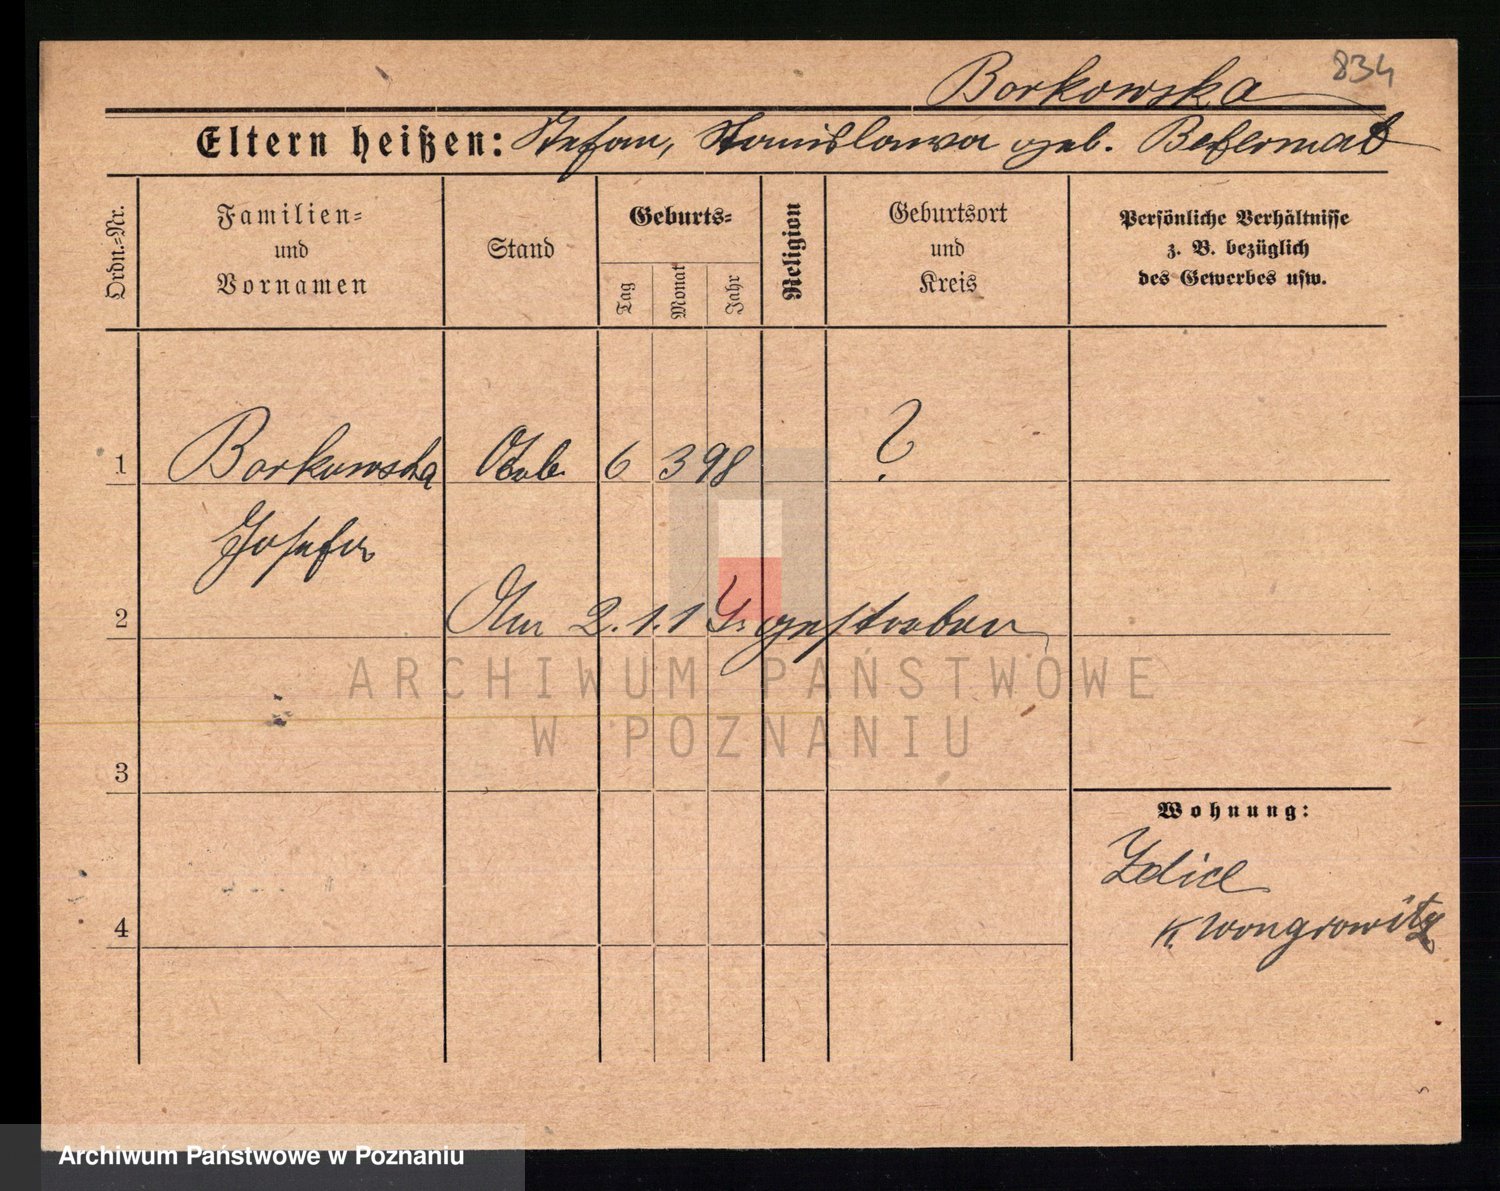 834
Borkowska
Eltern heißen: Stefan, Stanislawa geb.
Ordn.=Nr.
Familien=
und
Vornamen
Stand
Geburts=
Tag
Monat
Jahr
Religion
Geburtsort
und
Kreis
Persönliche Verhältnisse
z. B. bezüglich
des Gewerbes usw.
1 Borkowska 6 3 98 ?
Josefa
2 Am 2.1.19. gestorben
3
4
Wohnung:
Zdice
K. Wongrowitz
ARCHIWUM PAŃSTWOWE
W POZNANIU
Archiwum Państwowe w Poznaniu